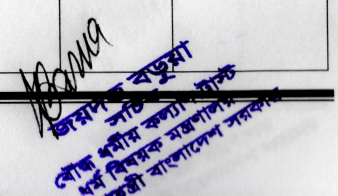 জয়দত্ত বড়ুয়া
সচিব
বৌদ্ধ ধর্মীয় কল্যাণ ট্রাস্ট
ধর্ম বিষয়ক মন্ত্রণালয়
বাংলাদেশ সরকার